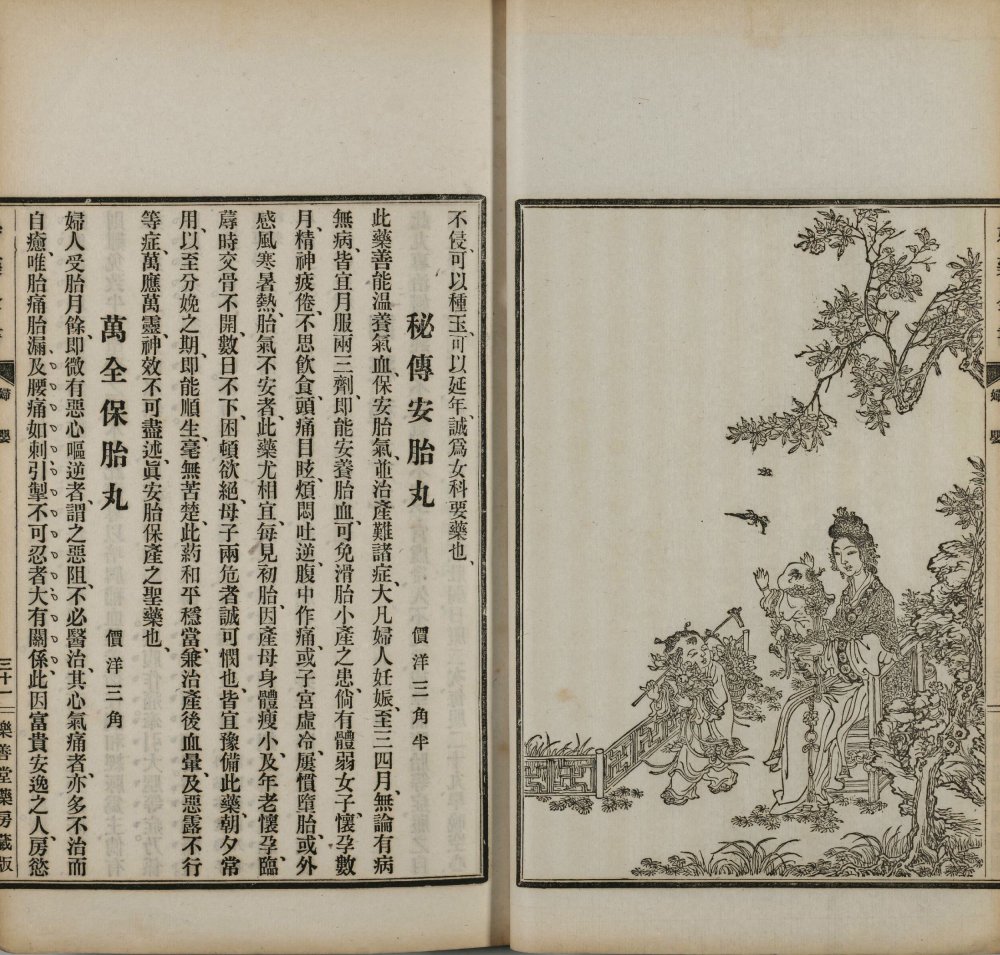 婦嬰
不侵、可以種玉、可以延年、誠爲女科要藥也、
秘傳安胎丸 價洋三角半
此藥善能溫養氣血、保安胎氣、並治產難諸症、大凡婦人妊娠、至三四月、無論有病
無病、皆宜月服兩三劑、即能安養胎血、可免滑胎小產之患、倘有體弱女子、懷孕數
月、精神疲倦、不思飲食、頭痛目眩、煩悶吐逆、腹中作痛、或子宮虛冷、屢慣墮胎、或外
感風寒暑熱、胎氣不安者、此藥尤相宜、每見初胎、因產母身體瘦小、及年老懷孕、臨
蓐時交骨不開、數日不下、困頓欲絕、母子兩危者、誠可憫也、皆宜豫備此藥、朝夕常
用、以至分娩之期、即能順生、毫無苦楚、此葯和平穩當、兼治產後血暈、及惡露不行
等症、萬應萬靈、神效不可盡述、眞安胎保產之聖藥也、
萬全保胎丸 價洋三角
婦人受胎月餘、即微有惡心嘔逆者、謂之惡阻、不必醫治、其心氣痛者、亦多不治而
自癒、唯胎痛胎漏及腰痛如刺引掣不可忍者大有關係、此因富貴安逸之人、房慾
婦嬰 三十一 樂善堂藥房藏版